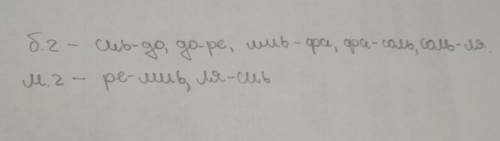 б.2 – сиь-до, до-ре, миь-фа, фа-соль, соль-ля.
м.2 – ре-миь, ля-сиь